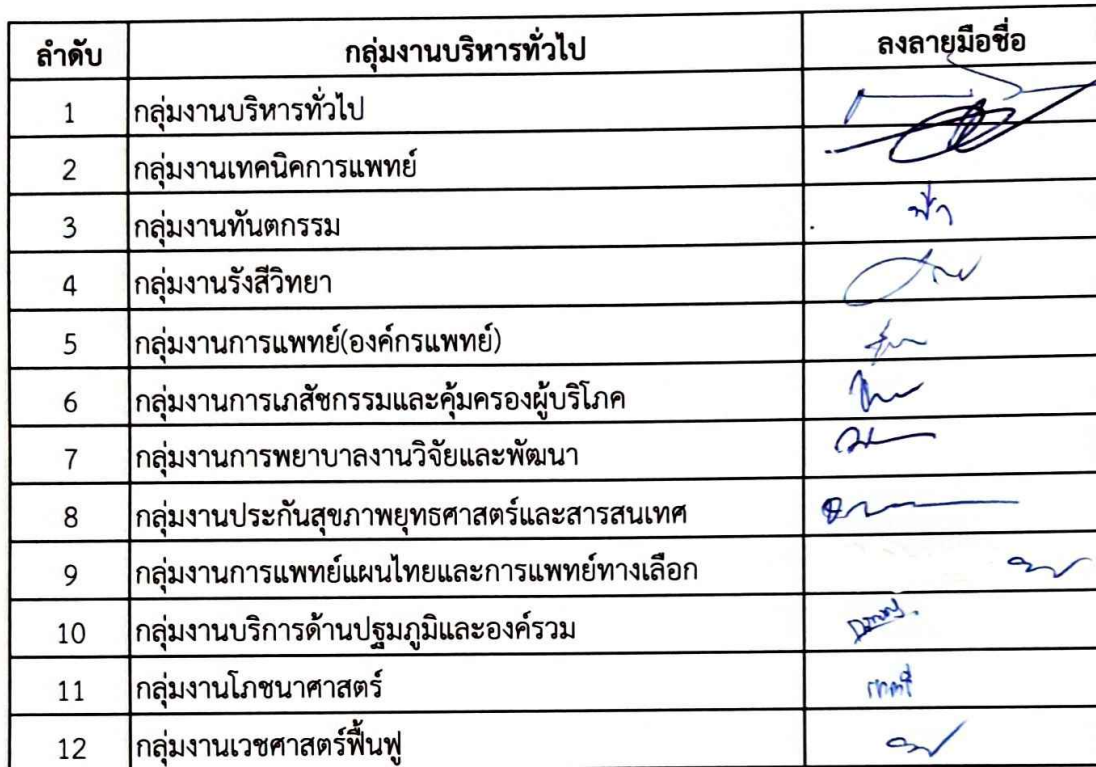 ลำดับ กลุ่มงานบริหารทั่วไป ลงลายมือชื่อ
1 กลุ่มงานบริหารทั่วไป
2 กลุ่มงานเทคนิคการแพทย์
3 กลุ่มงานทันตกรรม
4 กลุ่มงานรังสีวิทยา
5 กลุ่มงานการแพทย์(องค์กรแพทย์)
6 กลุ่มงานการเภสัชกรรมและคุ้มครองผู้บริโภค
7 กลุ่มงานการพยาบาลงานวิจัยและพัฒนา
8 กลุ่มงานประกันสุขภาพยุทธศาสตร์และสารสนเทศ
9 กลุ่มงานการแพทย์แผนไทยและการแพทย์ทางเลือก
10 กลุ่มงานบริการด้านปฐมภูมิและองค์รวม
11 กลุ่มงานโภชนาศาสตร์
12 กลุ่มงานเวชศาสตร์ฟื้นฟู